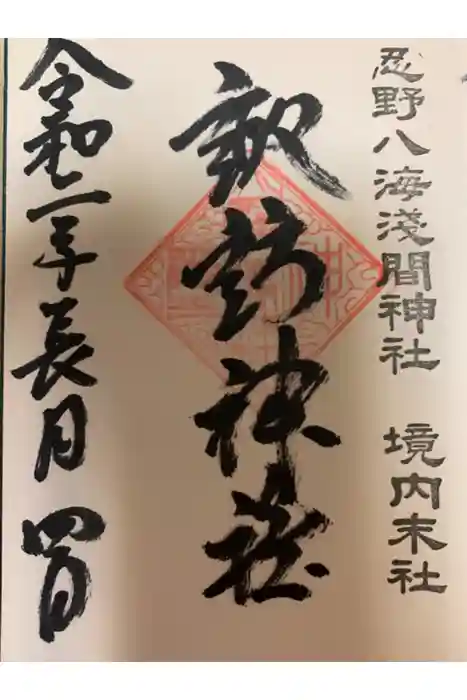 忍野八海淺間神社 境内末社
諏訪神社
令和二年長月四日